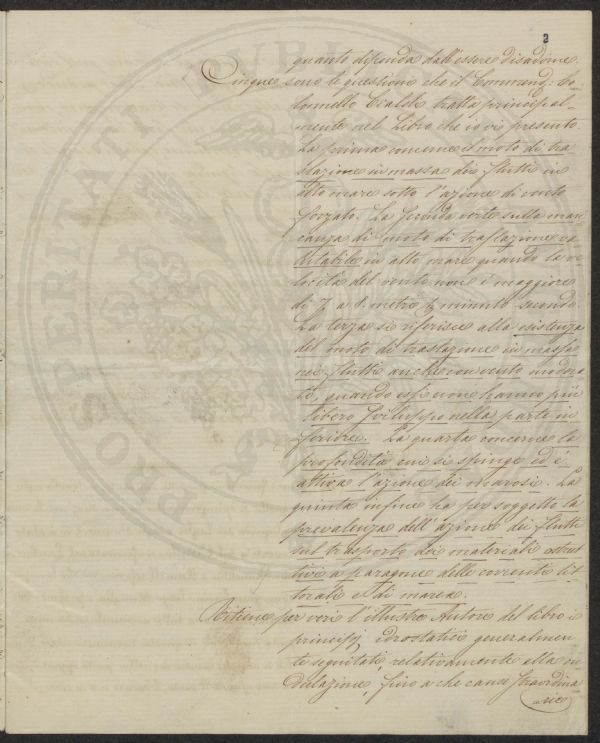 2
quanto dipenda dall'essere disadorne.
Cinque sono le questioni che il Commend: Co-
lonnello Cialdi tratta principal-
mente nel Libro che io vi presento.
La prima concerne il moto di tra
slazione in massa dei flutti in
alto mare sotto l'azione di vento
forzato. La seconda verte sulla man-
canza di moto di traslazione va
lutabile in alto mare quando la ve
locità del vento non è maggiore
di 7 a 8 metri minuto secondo.
La terza si riferisce alla esistenza
del moto di traslazione in massa
nei flutti anche con vento modera
to, quando essi non hanno più
libero sviluppo nella parte in
feriore. La quarta concerne la
profondità cui si spinge ed è
attiva l'azione dei marosi. La
quinta infine ha per soggetto la
prevalenza dell'azione dei flutti
sul trasporto dei materiali ostrut
tivi a paragone delle correnti lit
torali e di marea.
Ritiene per veri l'illustre Autore del libro i
principj idrostatici generalmen
te seguitati, relativamente alla on
dulazione, fino a che cause straordina
rie
PROSPERITATI PUBL